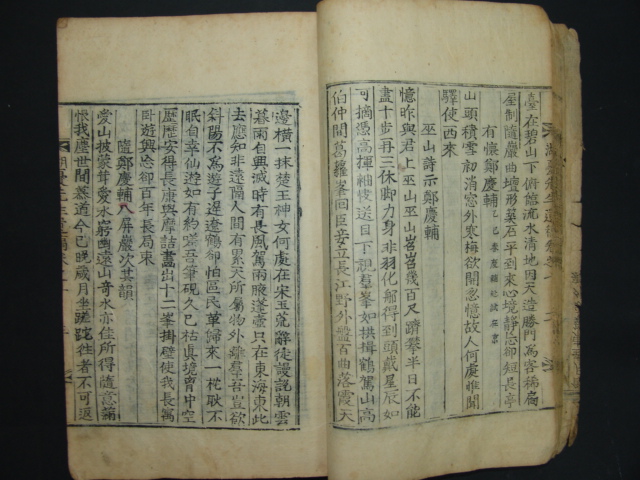 臺在碧山下俯臨流水清地因天造勝門爲客稱扁
屋制隨巖曲壇形築石平到來心境靜忘却短長亭
有懷鄭慶輔
山頭積雪初消意外寒梅欲開忽憶故人何處惟聞
驛使西來
巫山詩示鄭慶輔
憶昨與君上巫山巫山岧岧幾百尺躋攀半日不能
盡十步再三休脚力身非羽化能得到頭戴星辰如
可摘憑高揮袖俊送目下視羣峯如拱揖鶴駕山高
伯仲間葛蘿峯回臣妾立長江野外盤百曲落霞天
邊橫一抹楚王神女何處在宋玉荒辭徒謾說朝雲
暮雨自興滅時有長風駕兩腋蓬壺只在東海東此
去應知非遠隔人間有累天所屬物外離羣吾豈欲
斜陽不爲遊子遲遼鶴却怕區民革歸來一枕耿不
眠自幸仙遊如有約疏吾筆硯久已枯眞境胷中空
歷歷安得長康與摩詰畫出十二峯掛壁使我長寓
卧遊興忘却百年長局束
隨鄭慶輔八屏巖次其韻
愛山披蒙茸愛水窮幽遠山奇水亦佳所得隨意滿
恨我塵世間慕道今已晚歲月坐蹉跎往者不可返